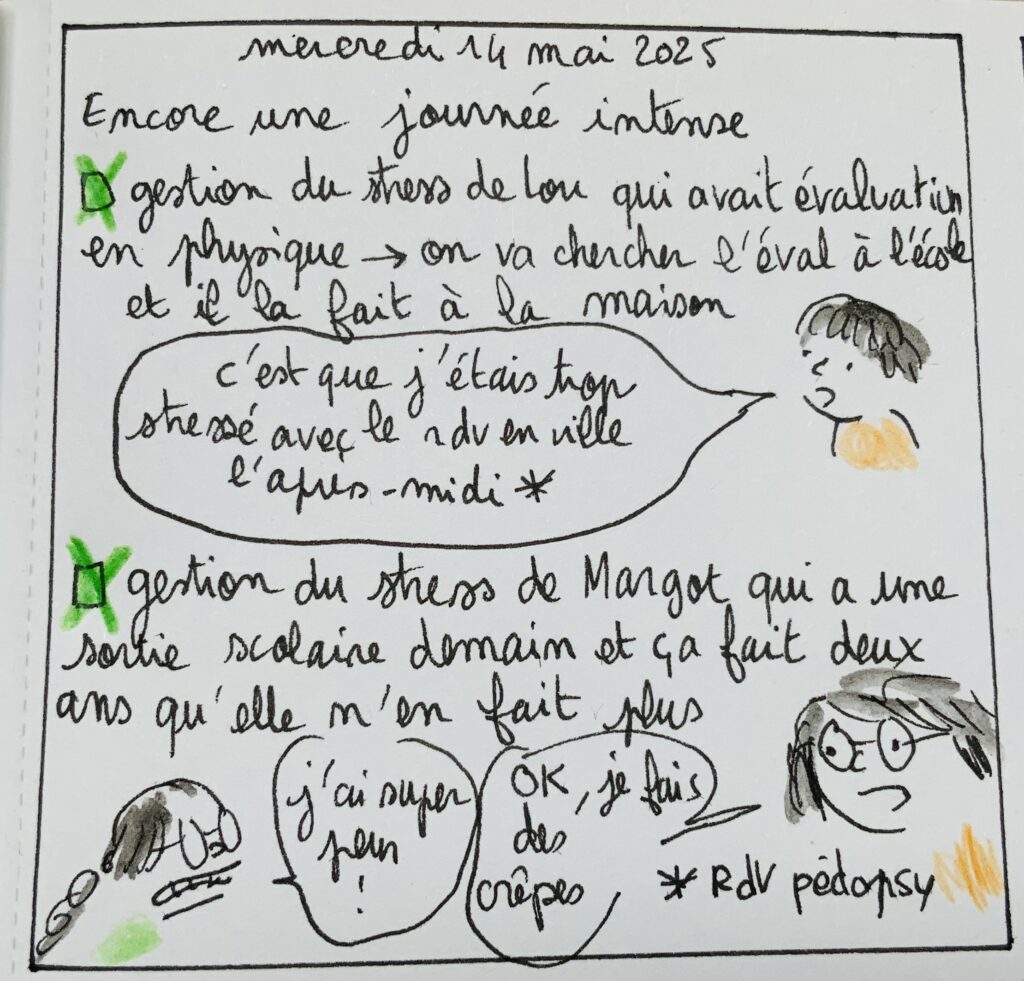 mercredi 14 mai 2025
Encore une journée intense
gestion du stress de Lou qui avait évaluation
en physique → on va chercher l'éval à l'école
et il la fait à la maison
c'est que j'étais trop
stressé avec le rdv en ville
l'après-midi *
gestion du stress de Margot qui a une
sortie scolaire demain et ça fait deux
ans qu'elle n'en fait plus
j'ai super
peur
!
OK, je fais
des
crêpes
* RdV pédopsy